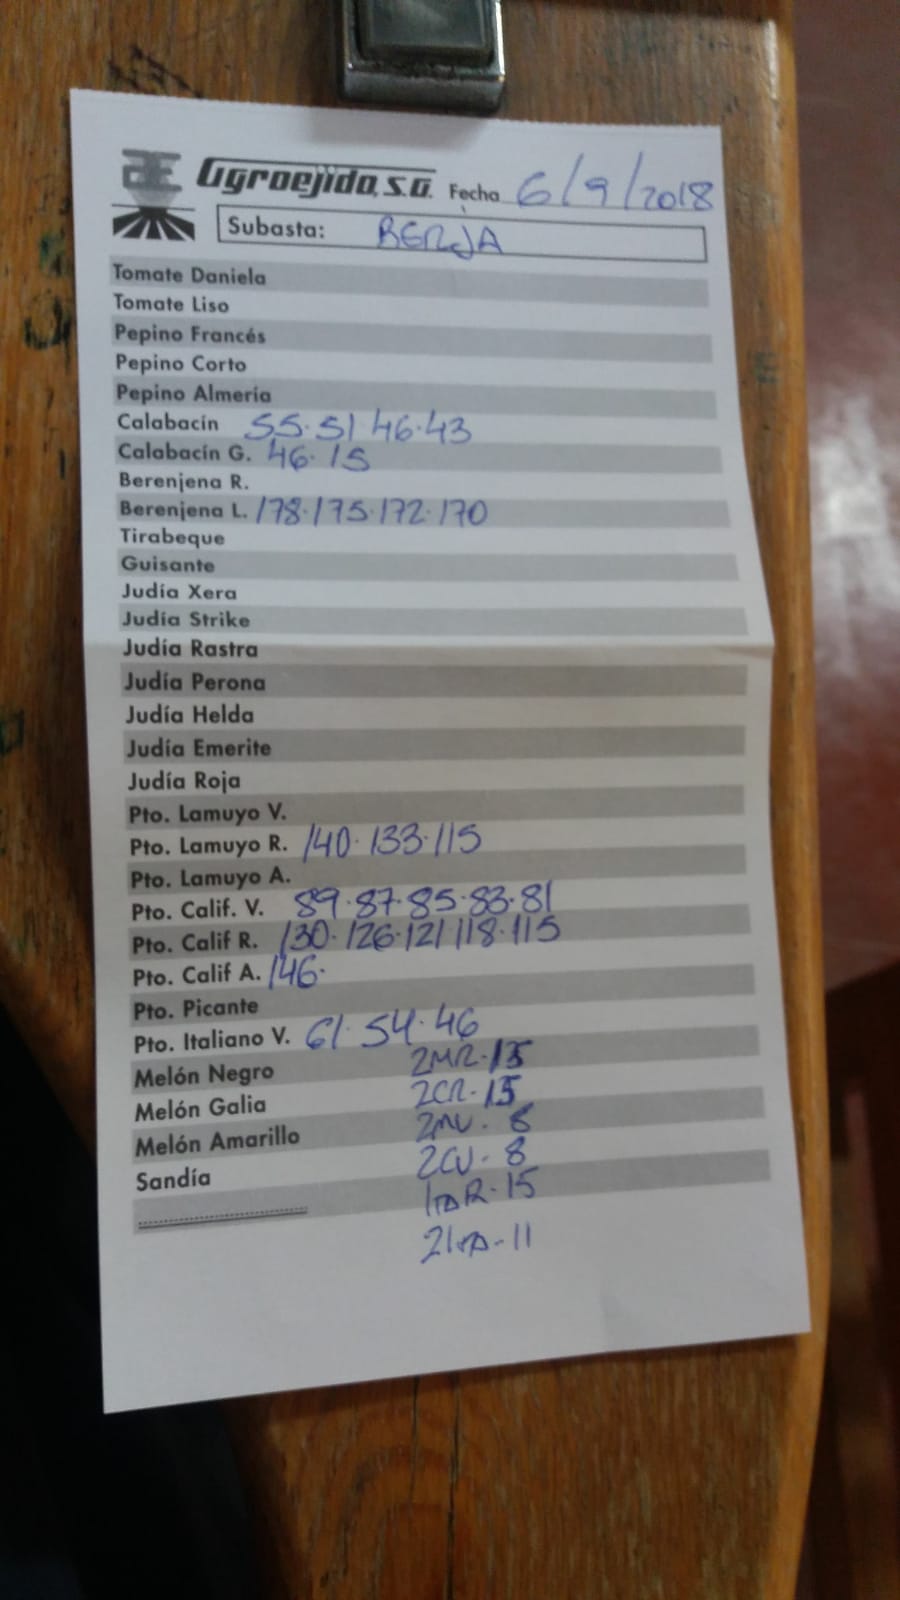 Agroejido, S.A. Fecha 6/9/2018
Subasta: BERJA
Tomate Daniela
Tomate Liso
Pepino Francés
Pepino Corto
Pepino Almería
Calabacín 55·51 46·43
Calabacín G. 46·15
Berenjena R.
Berenjena L. 178·175·172·170
Tirabeque
Guisante
Judía Xera
Judía Strike
Judía Rastra
Judía Perona
Judía Helda
Judía Emerite
Judía Roja
Pto. Lamuyo V.
Pto. Lamuyo R. 140·133·115
Pto. Lamuyo A.
Pto. Calif. V. 89·87·85·83·81
Pto. Calif R. 130·126·121 118·115
Pto. Calif A. 146·
Pto. Picante
Pto. Italiano V. 61·54·46
Melón Negro 2MR-15
Melón Galia 2CR-15
Melón Amarillo 2MV-8
Sandía 2CV-8
15
11